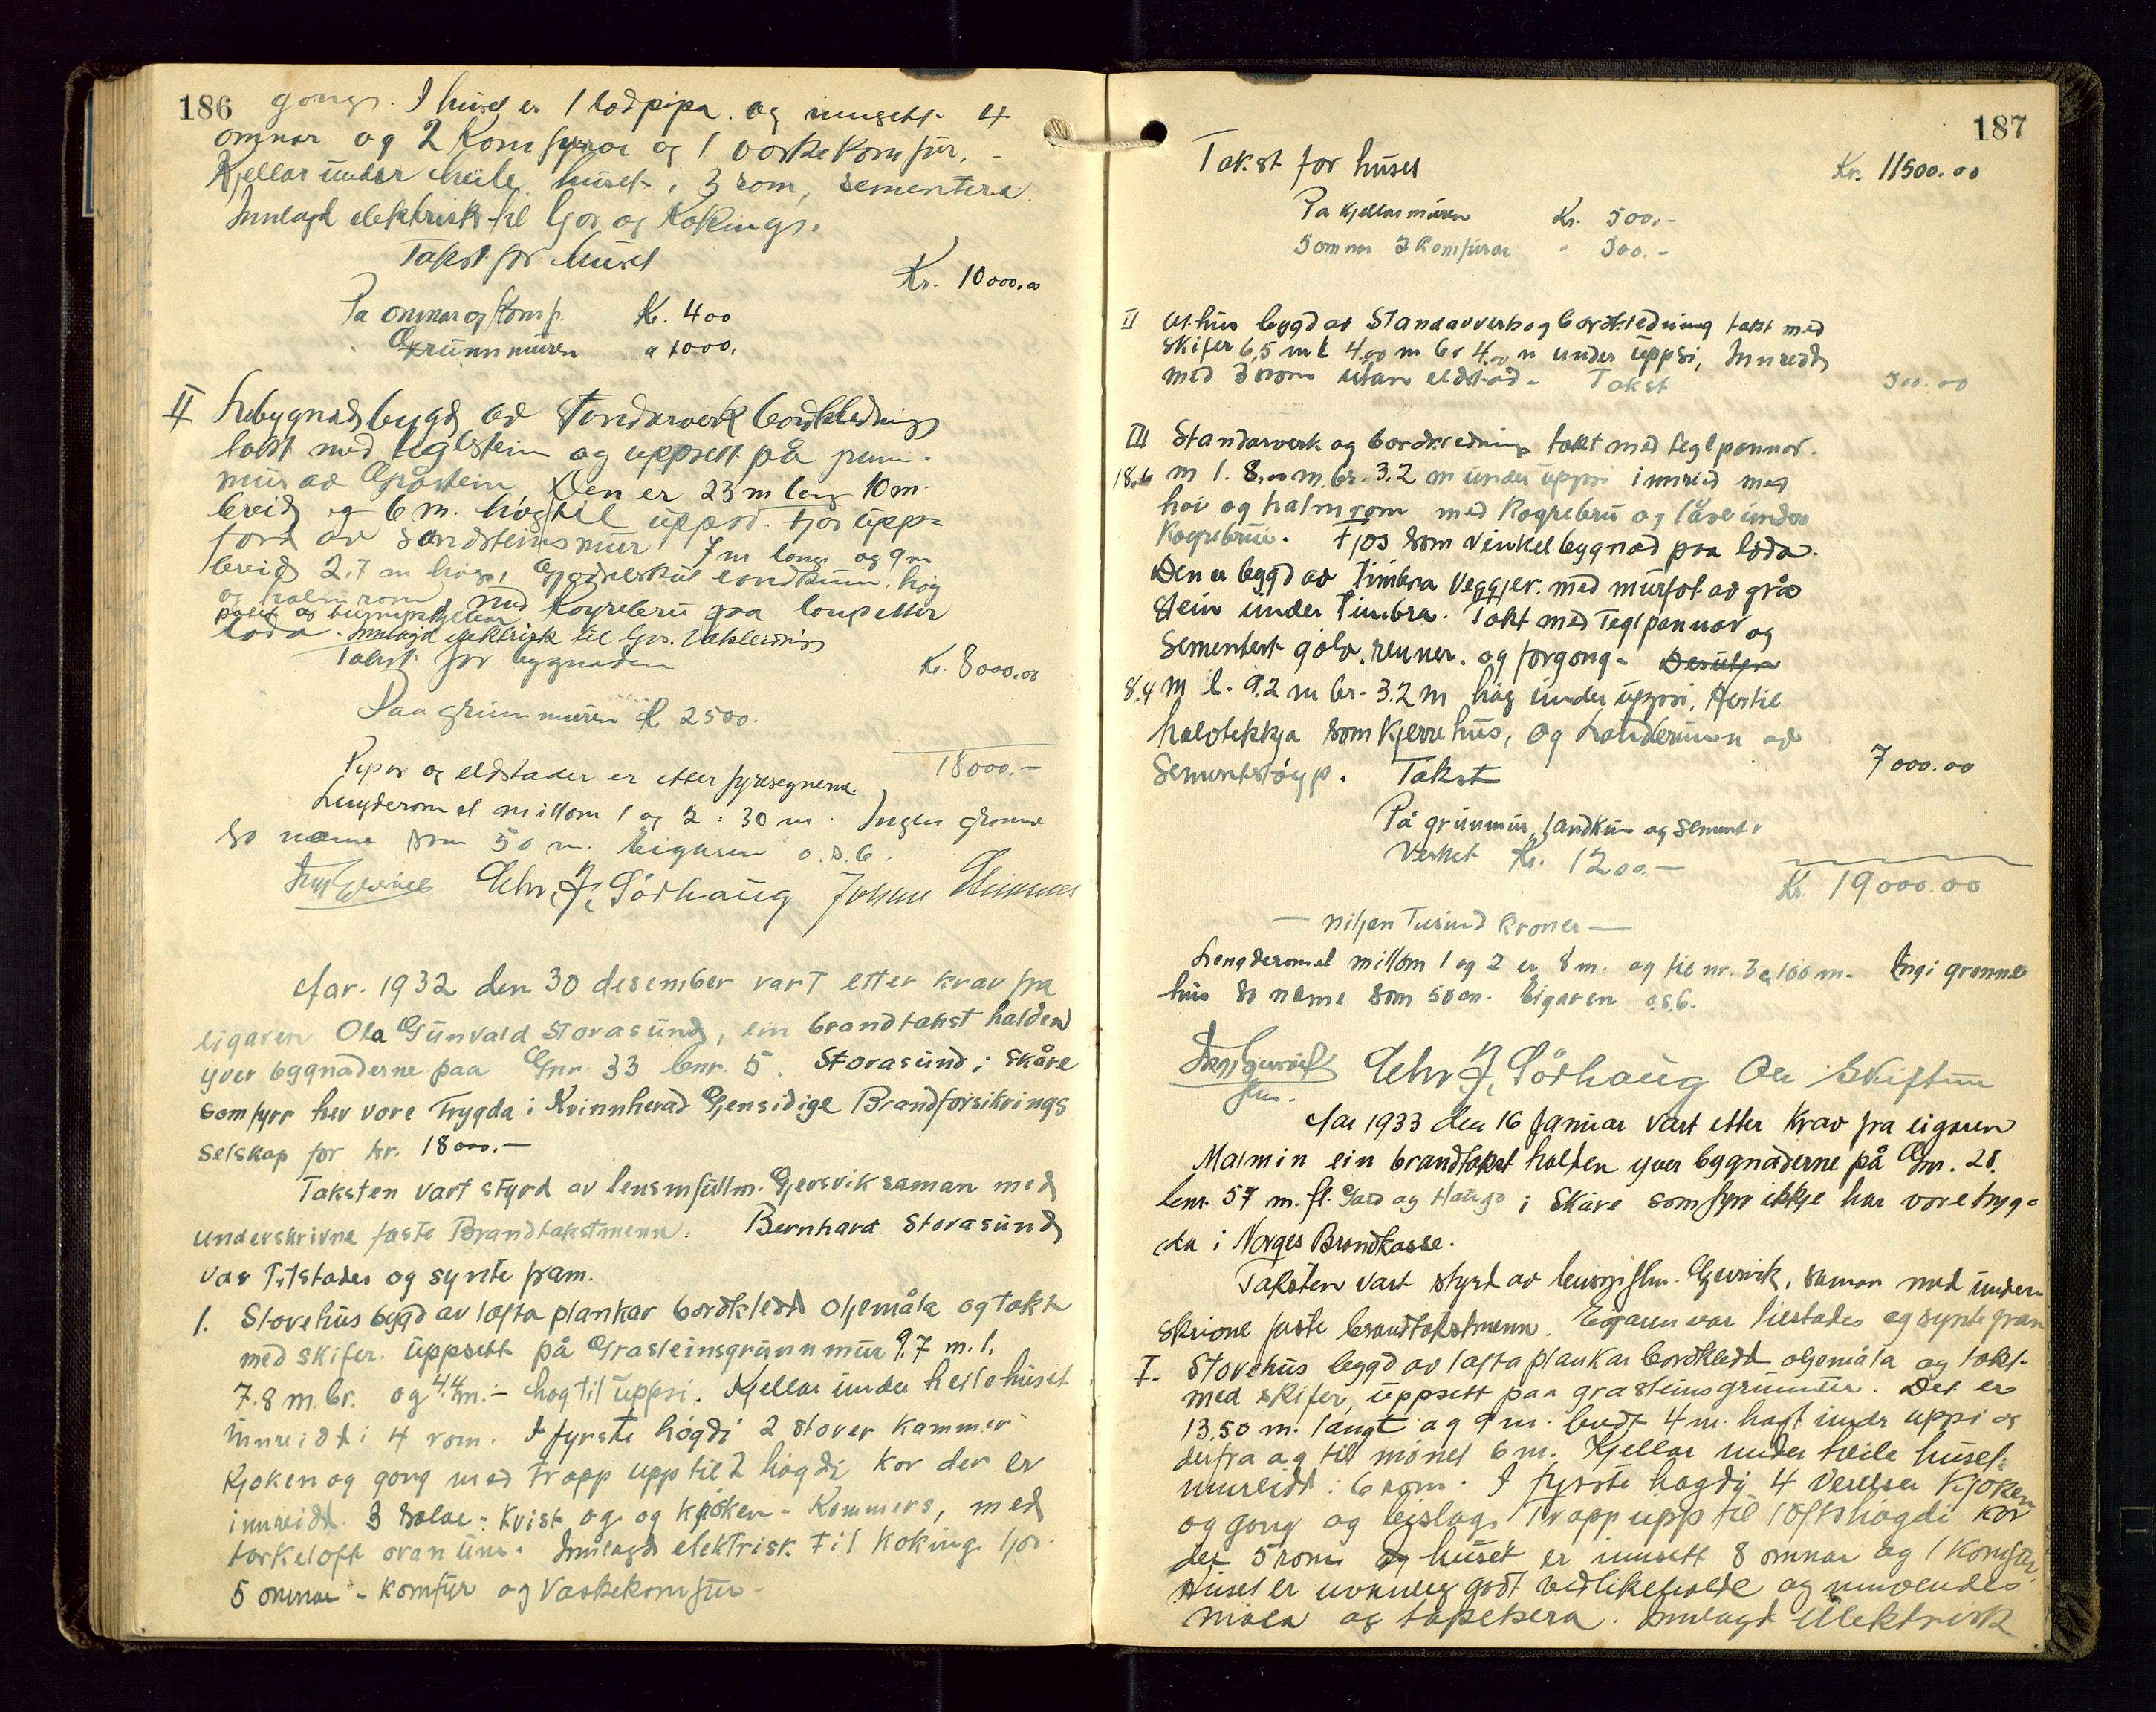 186
gong. I huset er 1 lodpipa og innsett 4
omnar og 2 Komfyrar og 1 vaskekomfür.
Kjellar ünder heile huset, i 3 rom, sementera.
Innlagd elektrisk til ljos og Kokings.
Takst for huset Kr. 10000.00
Pa omnar og Komf. Kr. 400
" Grunnmüren " 1000.
II Lobygnad bygd av Standarverk bordkledning
tekt med teglstein og uppsett på grunn-
mur av Gråstein. Den er 23 m lang 10 m.
breid og 6 m. høg til uppsi. Fjos upp-
ford av sandsteinsmur 7 m lang og 9 m
breid 2.7 m høg, Gjodselskul landkum, høy
og halmrom
potet og turnipskjellar med Køyrebru paa langsetter
loda. Innlagd elektrisk til ljos.
Takst for bygnaden Kr. 8000.00
Paa grunnmuren Kr 2500.
18000.-
Pipor og eldstader er etter fyresegnerne.
Lengderomet millom 1 og 2: 30 m. Ingen granne
so næme som 50 m. Eigaren o.s.b.
Chr. J. Sørhaug Johan
Aar 1932 den 30 desember vart etter krav fra
eigaren Ola Gunvald Storasund, ein brandtakst halden
yver bygnaderne paa Gnr. 33 bnr. 5. Storasund i Skåre
som fyrr hev vore Trygda i Kvinnherad Gjensidige Brandforsikrings
selskap for kr. 18000.-
Taksten vart styrd av lensmfullm. Gjersvik saman med
underskrivne faste Brandtakstmenn. Bernhard Storasund
var Tilstades og synte fram.
1. Stovehus bygd av lafta plankar bordkledd oljemåla og tekt
med skifer. Uppsett på Grasteinsgrunnmur 9.7 m. l.
7.8 m. br. og 4.4 m.- hog til uppsi. Kjellar under heile huset
innreidd i 4 rom. I fyrste høgdi 2 stover Kammer
Kjøken og gong med Trapp upp til 2 høgdi kor der er
innreidd 3 Salar - Kvist og og kjøken - Kammers, med
torkeloft ovanum. Innlagd elektrisk til Koking ljos.
5 omnar - Komfyr og Vaskekomfur -
187
Takst for huset Kr. 11500.00
Pa Kjellarmuren Kr. 500.-
5 omnar 2 Komfurar " 300.-
II Uthus bygd av Standarverk og bordkledning tekt med
skifer 6,5 m l 4.00 m br 4.00 m under uppsi, Innredd
med 3 rom utan eldstad - Takst 500.00
III Standarverk og bordkledning tekt med teglpannor.
18.6 m l. 8.00 m. br. 3.2 m under uppsi innreid med
høi og halmrom med Køyrebru og låve under
Køyrebrui. Fjos som vinkelbygnad paa loda.
Den er bygd av Timbra Veggjer med murfot av grå
stein under Timbra. Tekt med Teglpannor og
Sementert golv, renner. og forgong - Desuten
8.4 m l. 9.2 m br. 3.2 m høg under uppsi. Hertil
halvtekkja som Kjerrehus, og Landkum av
Sementstøyp. Takst 7000.00
På grunmur, landkum og sement-
verket Kr. 1200.-
Kr 19000.00
- nitjan Tusund Kroner -
Lengderomet millom 1 og 2 er 8 m. og til nr. 3 a 100 m. Ingi granne
hus so næme som 50 m. Eigaren o.s.b.
Chr. J. Sørhaug Ole Skiftun
Aar 1933 den 16 Januar vart etter krav fra eigaren
Malmin ein brandtakst halden yver bygnaderne på Gnr. 28.
bnr. 57 m. fl. Gard og Hauge i Skåre som fyrr ikkje har vore tryg-
da i Norges Brandkasse.
Taksten vart styrd av lensmflm. Gjersvik, saman med under-
skrivne faste brandtakstmenn. Eigaren var tilstades og synte fram
I. Stovehus bygd av lafta plankar bordkledd oljemåla og tekt
med skifer, uppsett paa grasteinsgrunnmur. Det er
13,50 m. langt og 9 m. breidt 4 m. høgt under uppsi og
derfra og til mønet 6 m. Kjellar under heile huset
innreidd i 6 rom. I fyrste høgdi 4 Verelser Kjøken
og gong og bislag. Trapp upp til loftshøgdi kor
det 5 rom. I huset er innsett 8 omnar og 1 Komfur
Huset er uvanleg godt vedlikeholde og innvendes
måla og tapetsera. Innlagt Elektrisk